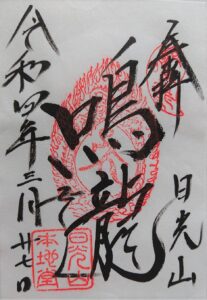 奉拝
日光山
鳴龍
令和四年三月廿七日
日光山
本地堂